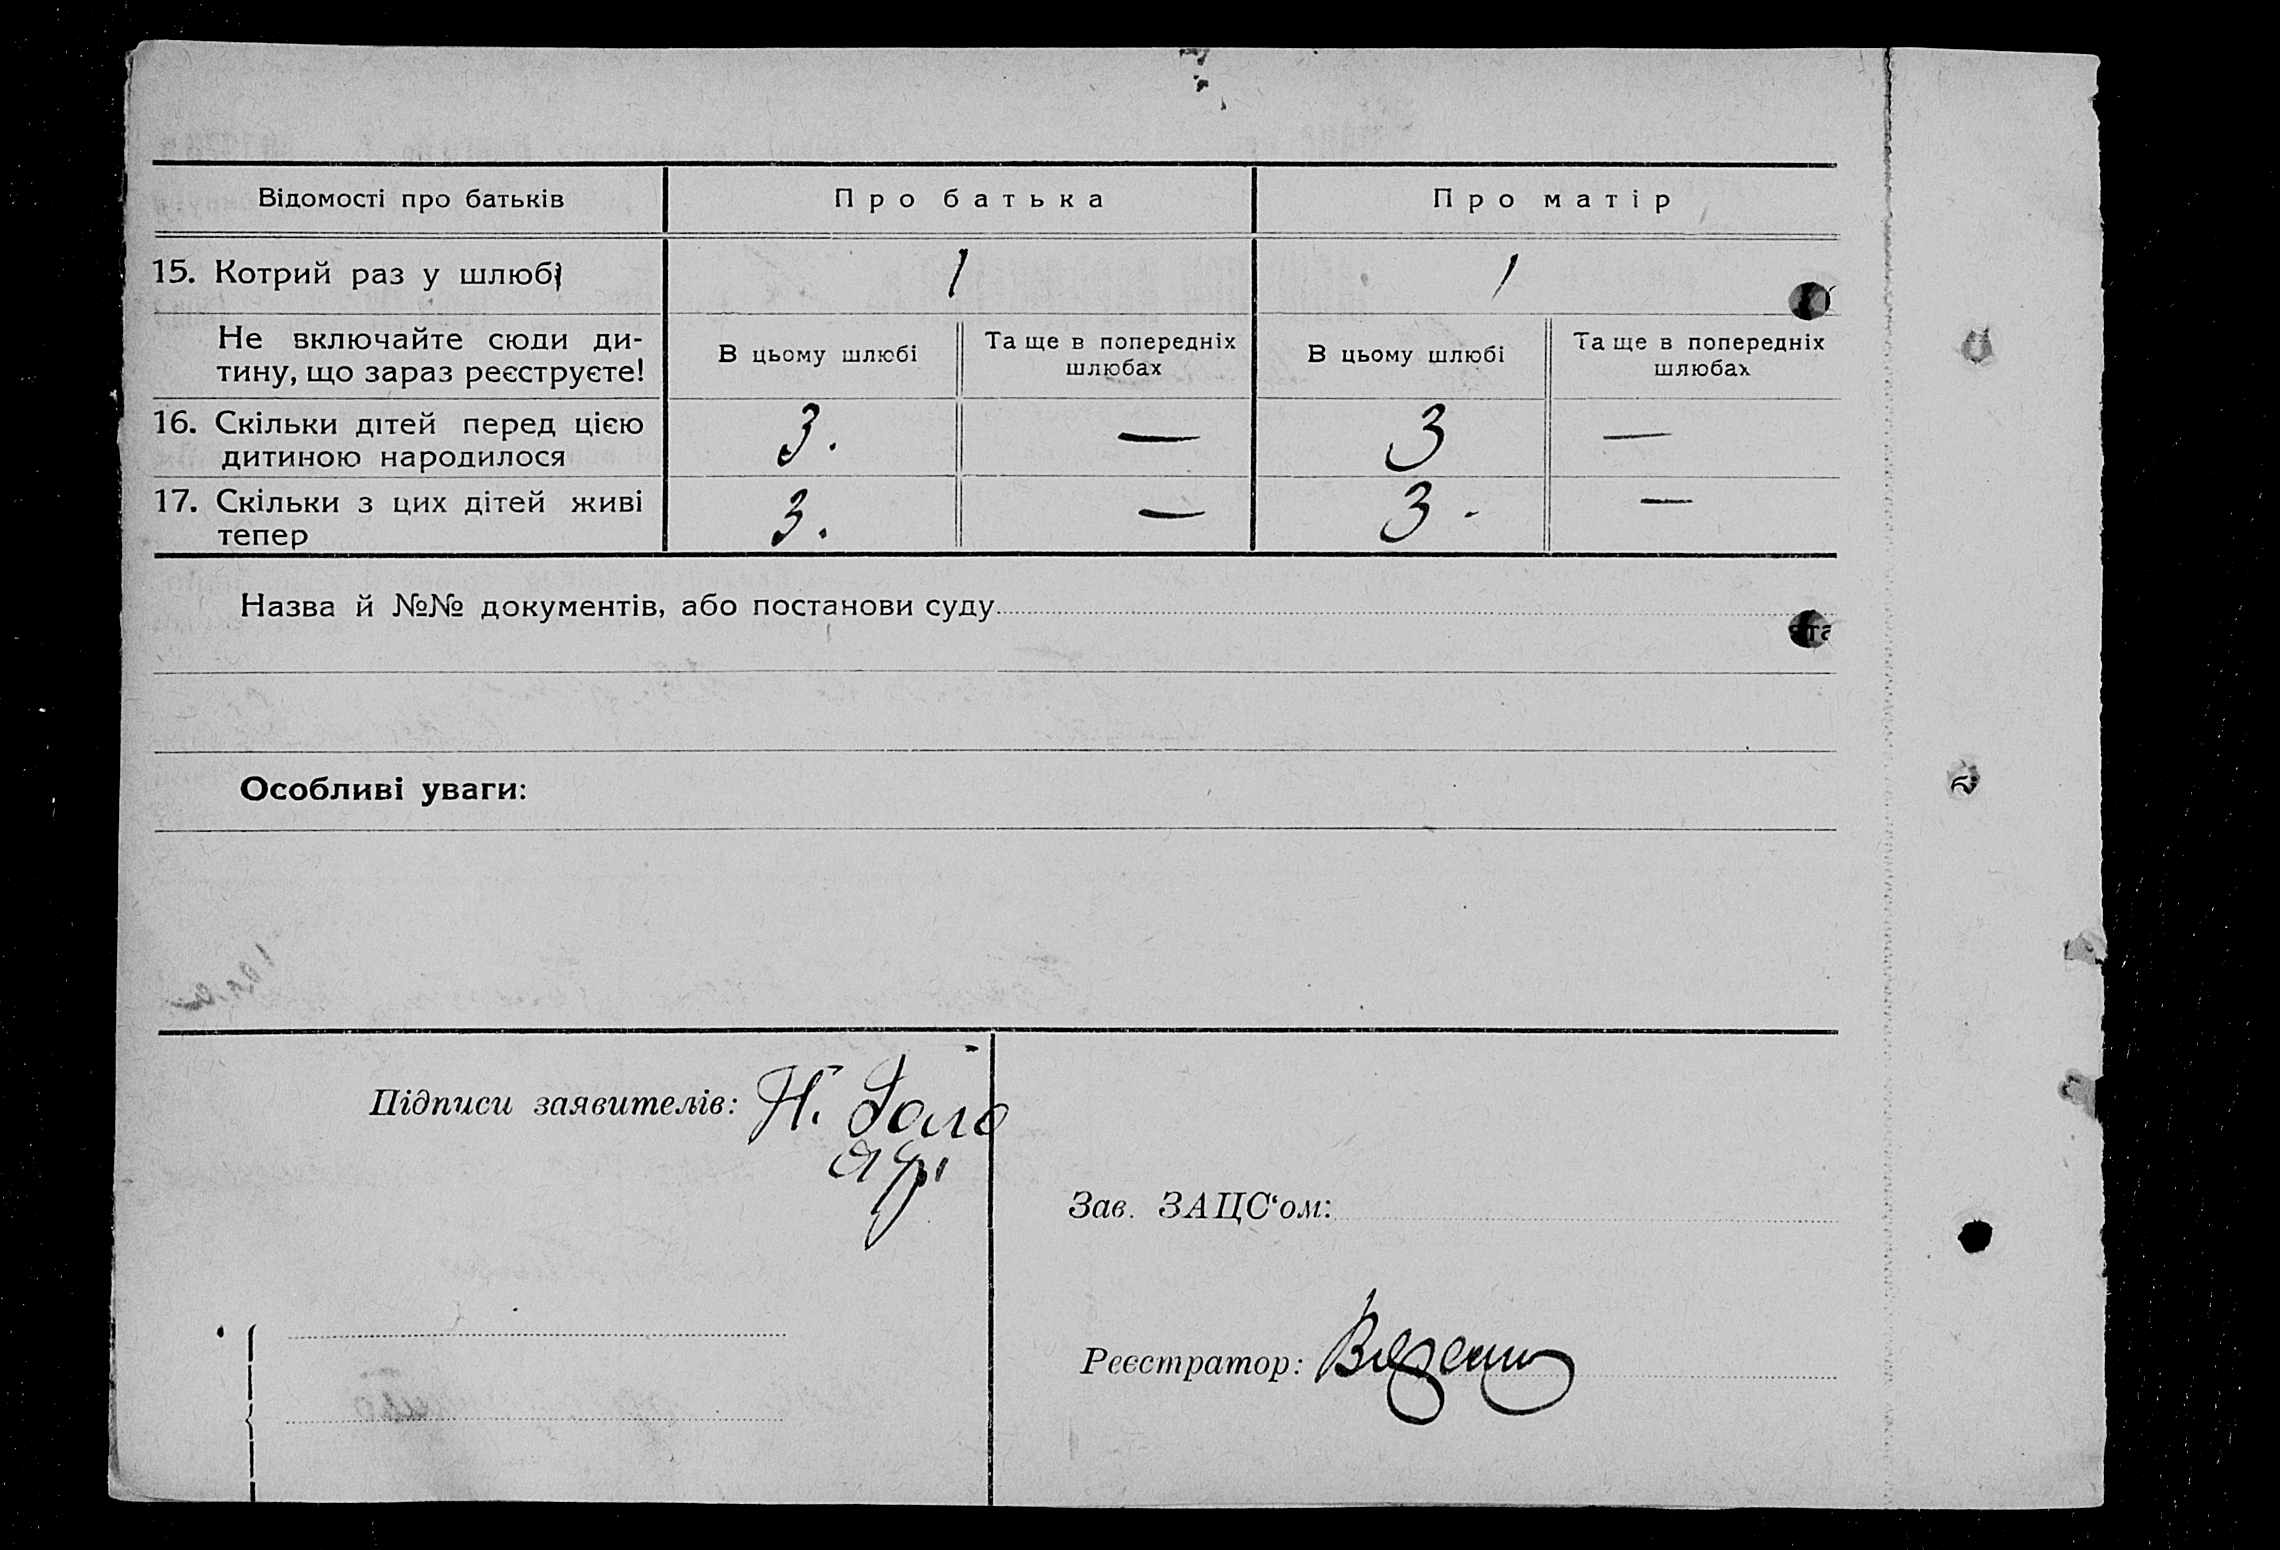 Відомості про батьків
Про батька
Про матір
15. Котрий раз у шлюбі
1
1
Не включайте сюди ди-
тину, що зараз реєструєте!
В цьому шлюбі
Та ще в попередніх
шлюбах
В цьому шлюбі
Та ще в попередніх
шлюбах
16. Скільки дітей перед цією
дитиною народилося
3.
—
3
—
17. Скільки з цих дітей живі
тепер
3.
—
3 -
—
Назва й №№ документів, або постанови суду
Особливі уваги:
Підписи заявителів: Н.
Зав. ЗАЦС‘ом:
Реєстратор: